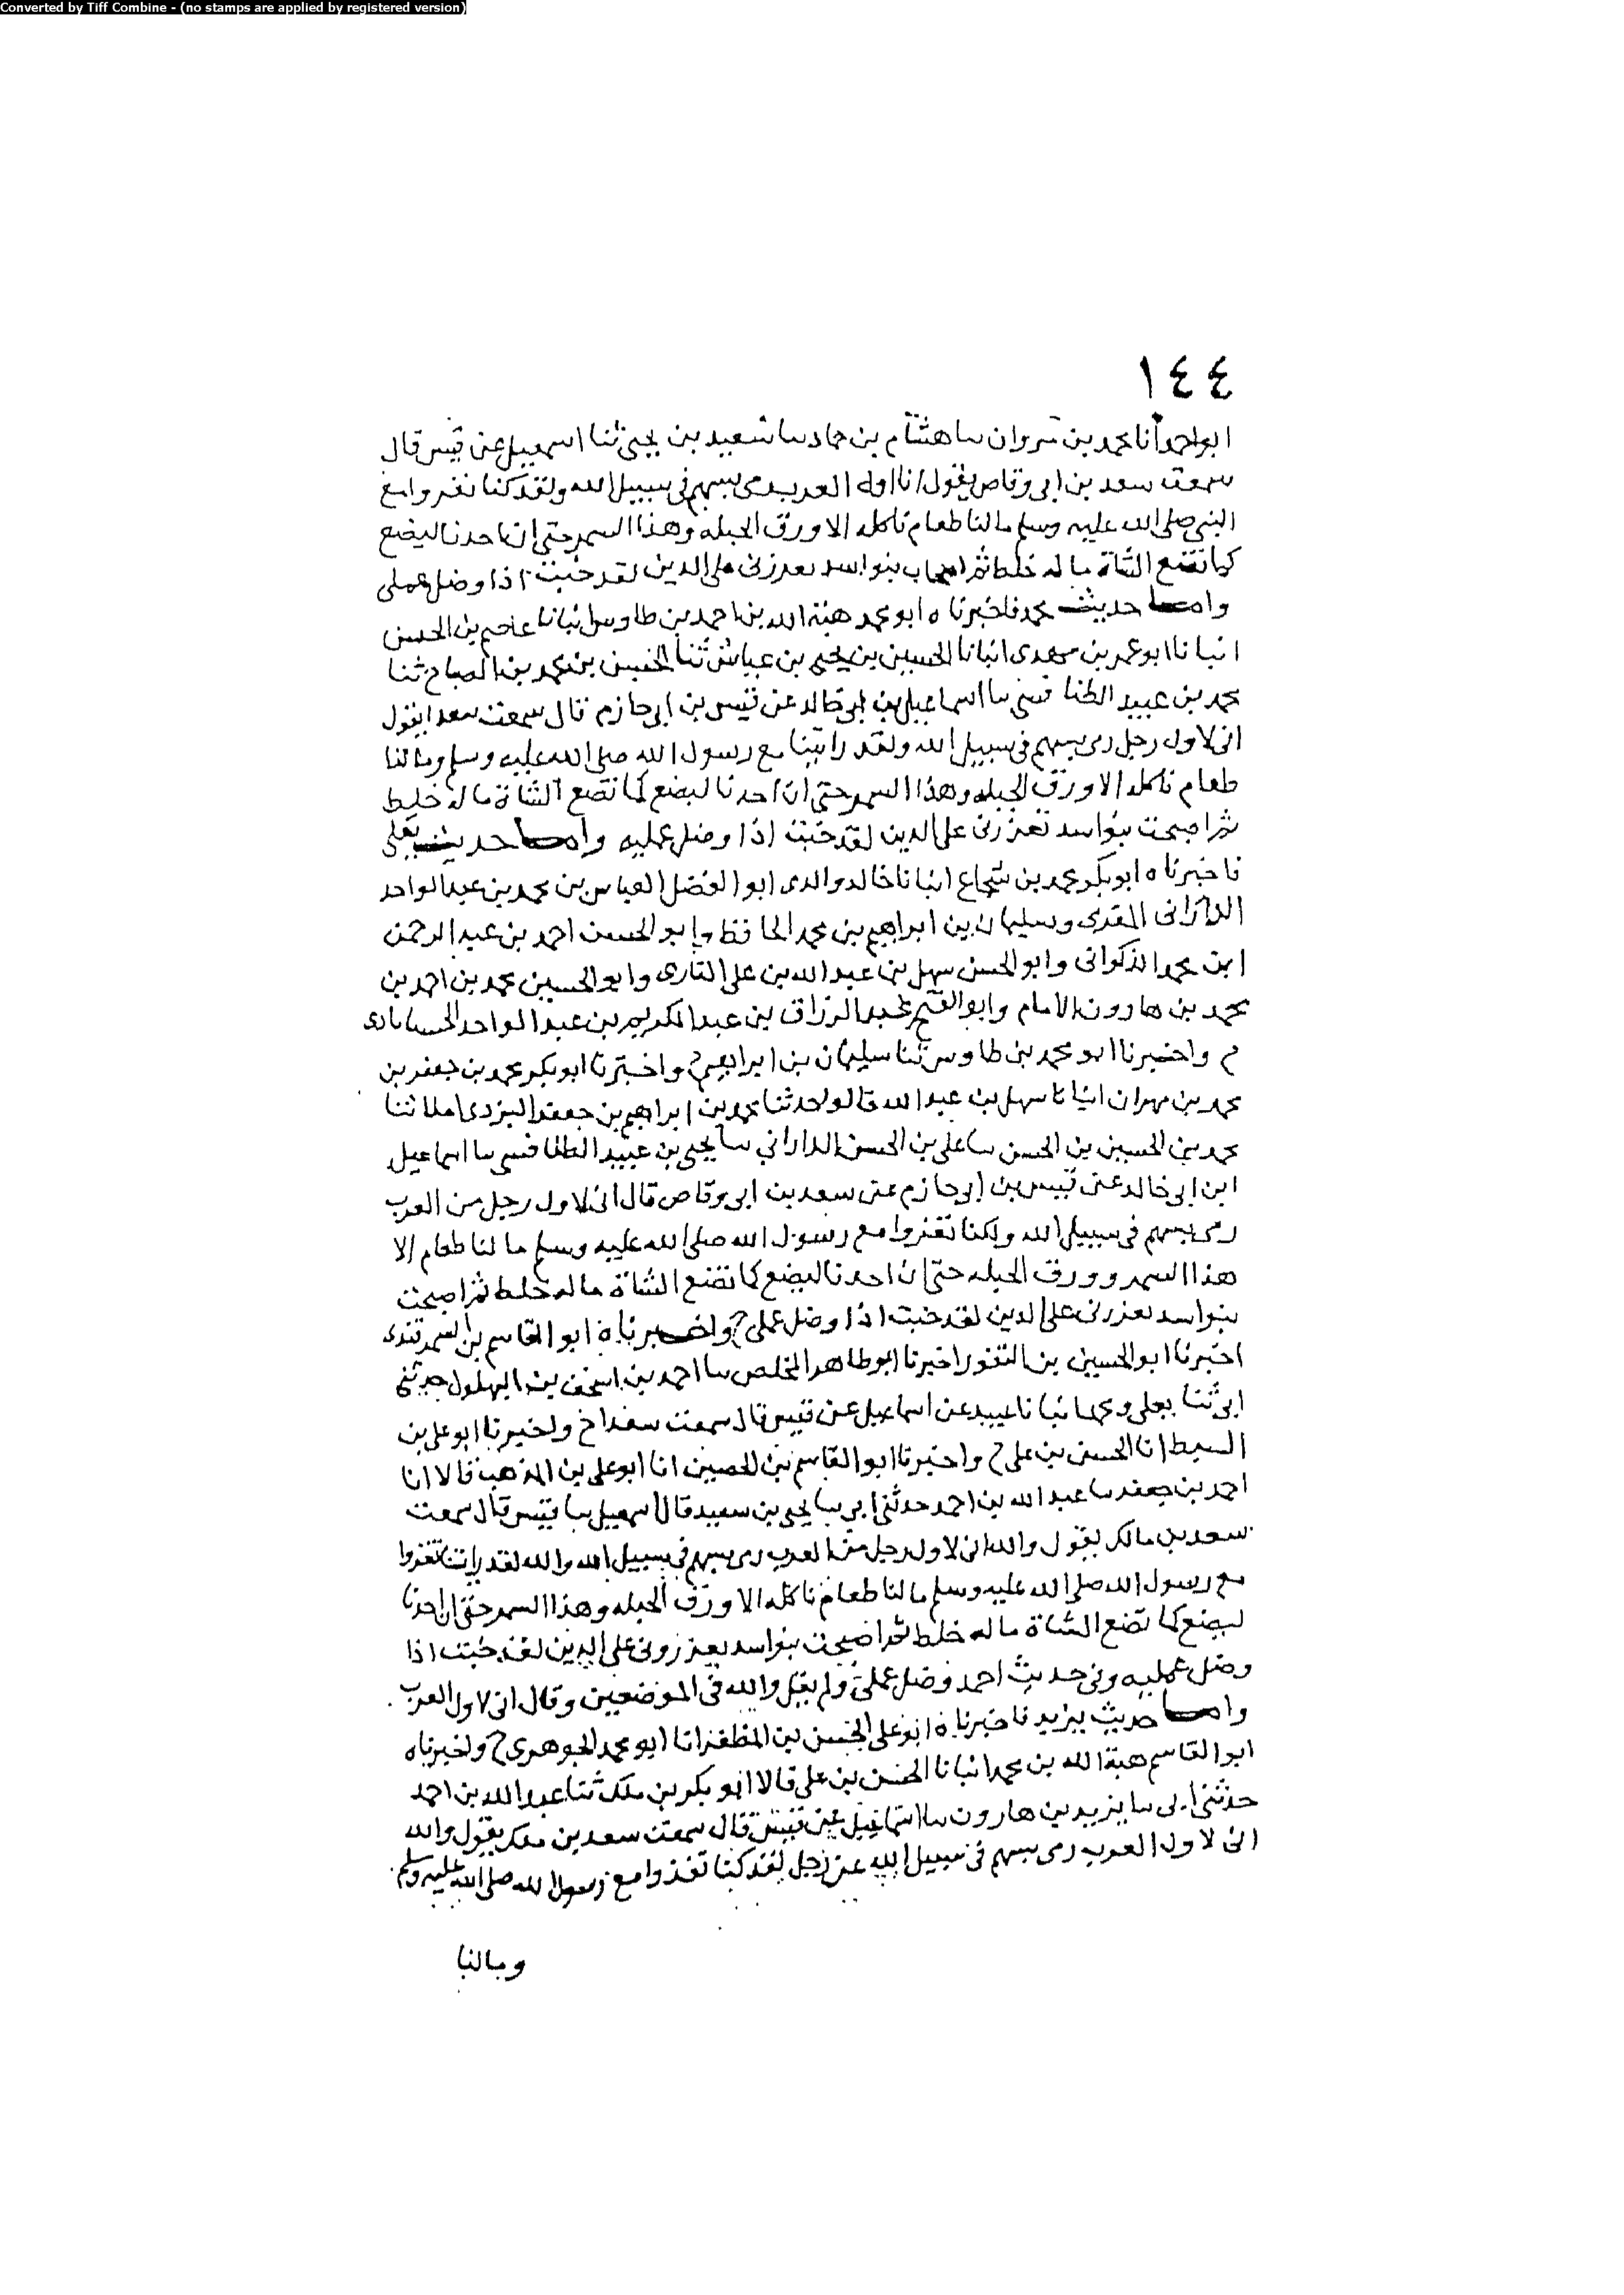 Converted by Tiff Combine - (no stamps are applied by registered version)
١٤٤
ابو احمد انا محمد بن مروان نا هشام بن حماد نا سعيد بن يحيى ثنا اسمعيل عن قيس قال
سمعت سعد بن ابي وقاص يقول انا اول العرب رمى بسهم في سبيل الله ولقد كنا نغزوا مع
النبي صلى الله عليه وسلم ما لنا طعام ناكله الا ورق الحبله وهذا السمر حتى ان احدنا ليضع
كما تضع الشاة ما له خلط ثم اصحاب بنوا اسد تعزرني على الدين لقد خبت اذا وضل عملي
واما حديث محمد فاخبرناه ابو محمد هبة الله بن احمد بن طاوس انبانا عاصم بن الحسن
انبانا ابو عمر بن مهدي انبانا الحسين بن يحيى بن عياش ثنا الحسن بن محمد بن الصباح ثنا
محمد بن عبيد الطنافسي نا اسماعيل بن ابي خالد عن قيس بن ابي حازم قال سمعت سعدا يقول
اني لاول رجل رمى بسهم في سبيل الله ولقد رايتنا مع رسول الله صلى الله عليه وسلم وما لنا
طعام ناكله الا ورق الحبله وهذا السمر حتى ان احدنا ليضع كما تضع الشاة ما له خلط
ثم اصبحت بنوا اسد تعزرني على الدين لقد خبت اذا وضل عمليه واما حديث يعلى
فاخبرناه ابو بكر محمد بن شجاع انبانا خالد والدي ابو الفضل العباس بن محمد بن عبد الواحد
الداراني المقرى وسليمان بن ابراهيم بن محمد الحافظ وابو الحسن احمد بن عبد الرحمن
ابن محمد الذكواني وابو الحسن سهل بن عبد الله بن علي القارى وابو الحسين محمد بن احمد بن
محمد بن هارون الامام وابو الفتح عبد الرزاق بن عبد الكريم بن عبد الواحد الحسنابادى
ح واخبرنا ابو محمد بن طاوس ثنا سليمان بن ابراهيم ح واخبرنا ابو بكر محمد بن جعفر بن
محمد بن مهران انبانا سهل بن عبد الله قالوا حدثنا محمد بن ابراهيم بن جعفر اليزدي املا ثنا
محمد بن الحسين بن الحسن نا علي بن الحسن الداراني نا يحيى بن عبيد الطنافسي نا اسماعيل
ابن ابي خالد عن قيس بن ابي حازم عن سعد بن ابي وقاص قال اني لاول رجل من العرب
رمى بسهم في سبيل الله ولكنا نغزوا مع رسول الله صلى الله عليه وسلم ما لنا طعام الا
هذا السمر وورق الحبله حتى ان احدنا ليضع كما تضع الشاة ما له خلط ثم اصبحت
بنوا اسد تعزرني على الدين لقد خبت اذا وضل عملي ح واخبرناه ابو القاسم بن السمرقندى
اخبرنا ابو الحسين بن النقور اخبرنا ابو طاهر المخلص نا احمد بن اسحق بن البهلول حدثني
ابي ثنا يعلى ومحمد انبانا عبيد عن اسماعيل عن قيس قال سمعت سعدا ح واخبرنا ابو علي بن
السبط انا الحسن بن علي ح واخبرنا ابو القاسم بن الحصين انا ابو علي بن المذهب قالا انا
احمد بن جعفر نا عبد الله بن احمد حدثني ابي نا يحيى بن سعيد قال اسمعيل نا قيس قال سمعت
سعد بن مالك يقول والله اني لاول رجل من العرب رمى بسهم في سبيل الله والله لقد رايتنا نغزوا
مع رسول الله صلى الله عليه وسلم ما لنا طعام ناكله الا ورق الحبله وهذا السمر حتى ان احدنا
ليضع كما تضع الشاة ما له خلط ثم اصبحت بنوا اسد يعزروني على الدين لقد خبت اذا
وضل عمليه وفي حديث احمد وضل عملي ولم يقل والله في الموضعين وقال اني لاول العرب
واما حديث يزيد فاخبرناه ابو علي الحسن بن المظفر انا ابو محمد الجوهري ح واخبرناه
ابو القاسم هبة الله بن محمد انبانا الحسن بن علي قالا ابو بكر بن ملك ثنا عبد الله بن احمد
حدثني ابي نا يزيد بن هارون نا اسماعيل عن قيس قال سمعت سعد بن ملك يقول والله
اني لاول العرب رمى بسهم في سبيل الله عز وجل لقد كنا نغزوا مع رسول الله صلى الله عليه وسلم
وما لنا